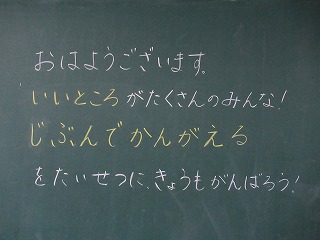 おはようございます。
いいところがたくさんのみんな!
じぶんでかんがえる
をたいせつに、きょうもがんばろう!